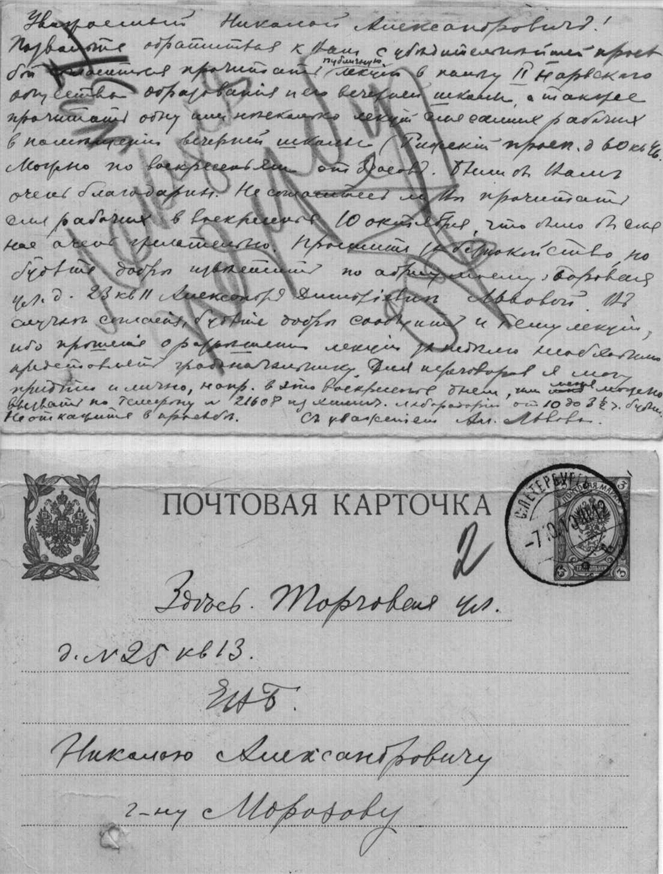 Уважаемый Николай Александрович!
Позвольте обратиться к Вам с убедительнейшей прось
бой согласиться прочитать публичную лекцию в пользу II Нарвского
общества образования и его вечерней школы, а также
прочитать одну или несколько лекций для самих рабочих
в помещении вечерней школы (Рижский просп. д 60 кв
Можно по воскресеньям от часов). Были бы Вам
очень благодарны. Не согласитесь ли Вы прочитать
для рабочих в воскресенье 10 октября, что было бы для
нас очень желательно. Простите за беспокойство, но
будьте добры известить по адресу: Боровая
ул. д. 23 кв 11 Александре Дмитриевне Львовой. В
случае согласия, будьте добры сообщить и тему лекции,
ибо прошение о разрешении лекции за неделю необходимо
представлять градоначальнику. Для переговоров я могу
придти и лично, напр. в это воскресенье днем, или меня можно
вызвать по телефону № 21608 из лаборатории от 10 до 3½ ч. будни.
Не откажите в просьбе. С уважением Ал. Львова.
ПОЧТОВАЯ КАРТОЧКА
С.ПЕТЕРБУРГЪ
2
Здѣсь. Торговая ул.
д. № 25 кв 13.
ЕВБ.
Николаю Александровичу
г-ну Морозову